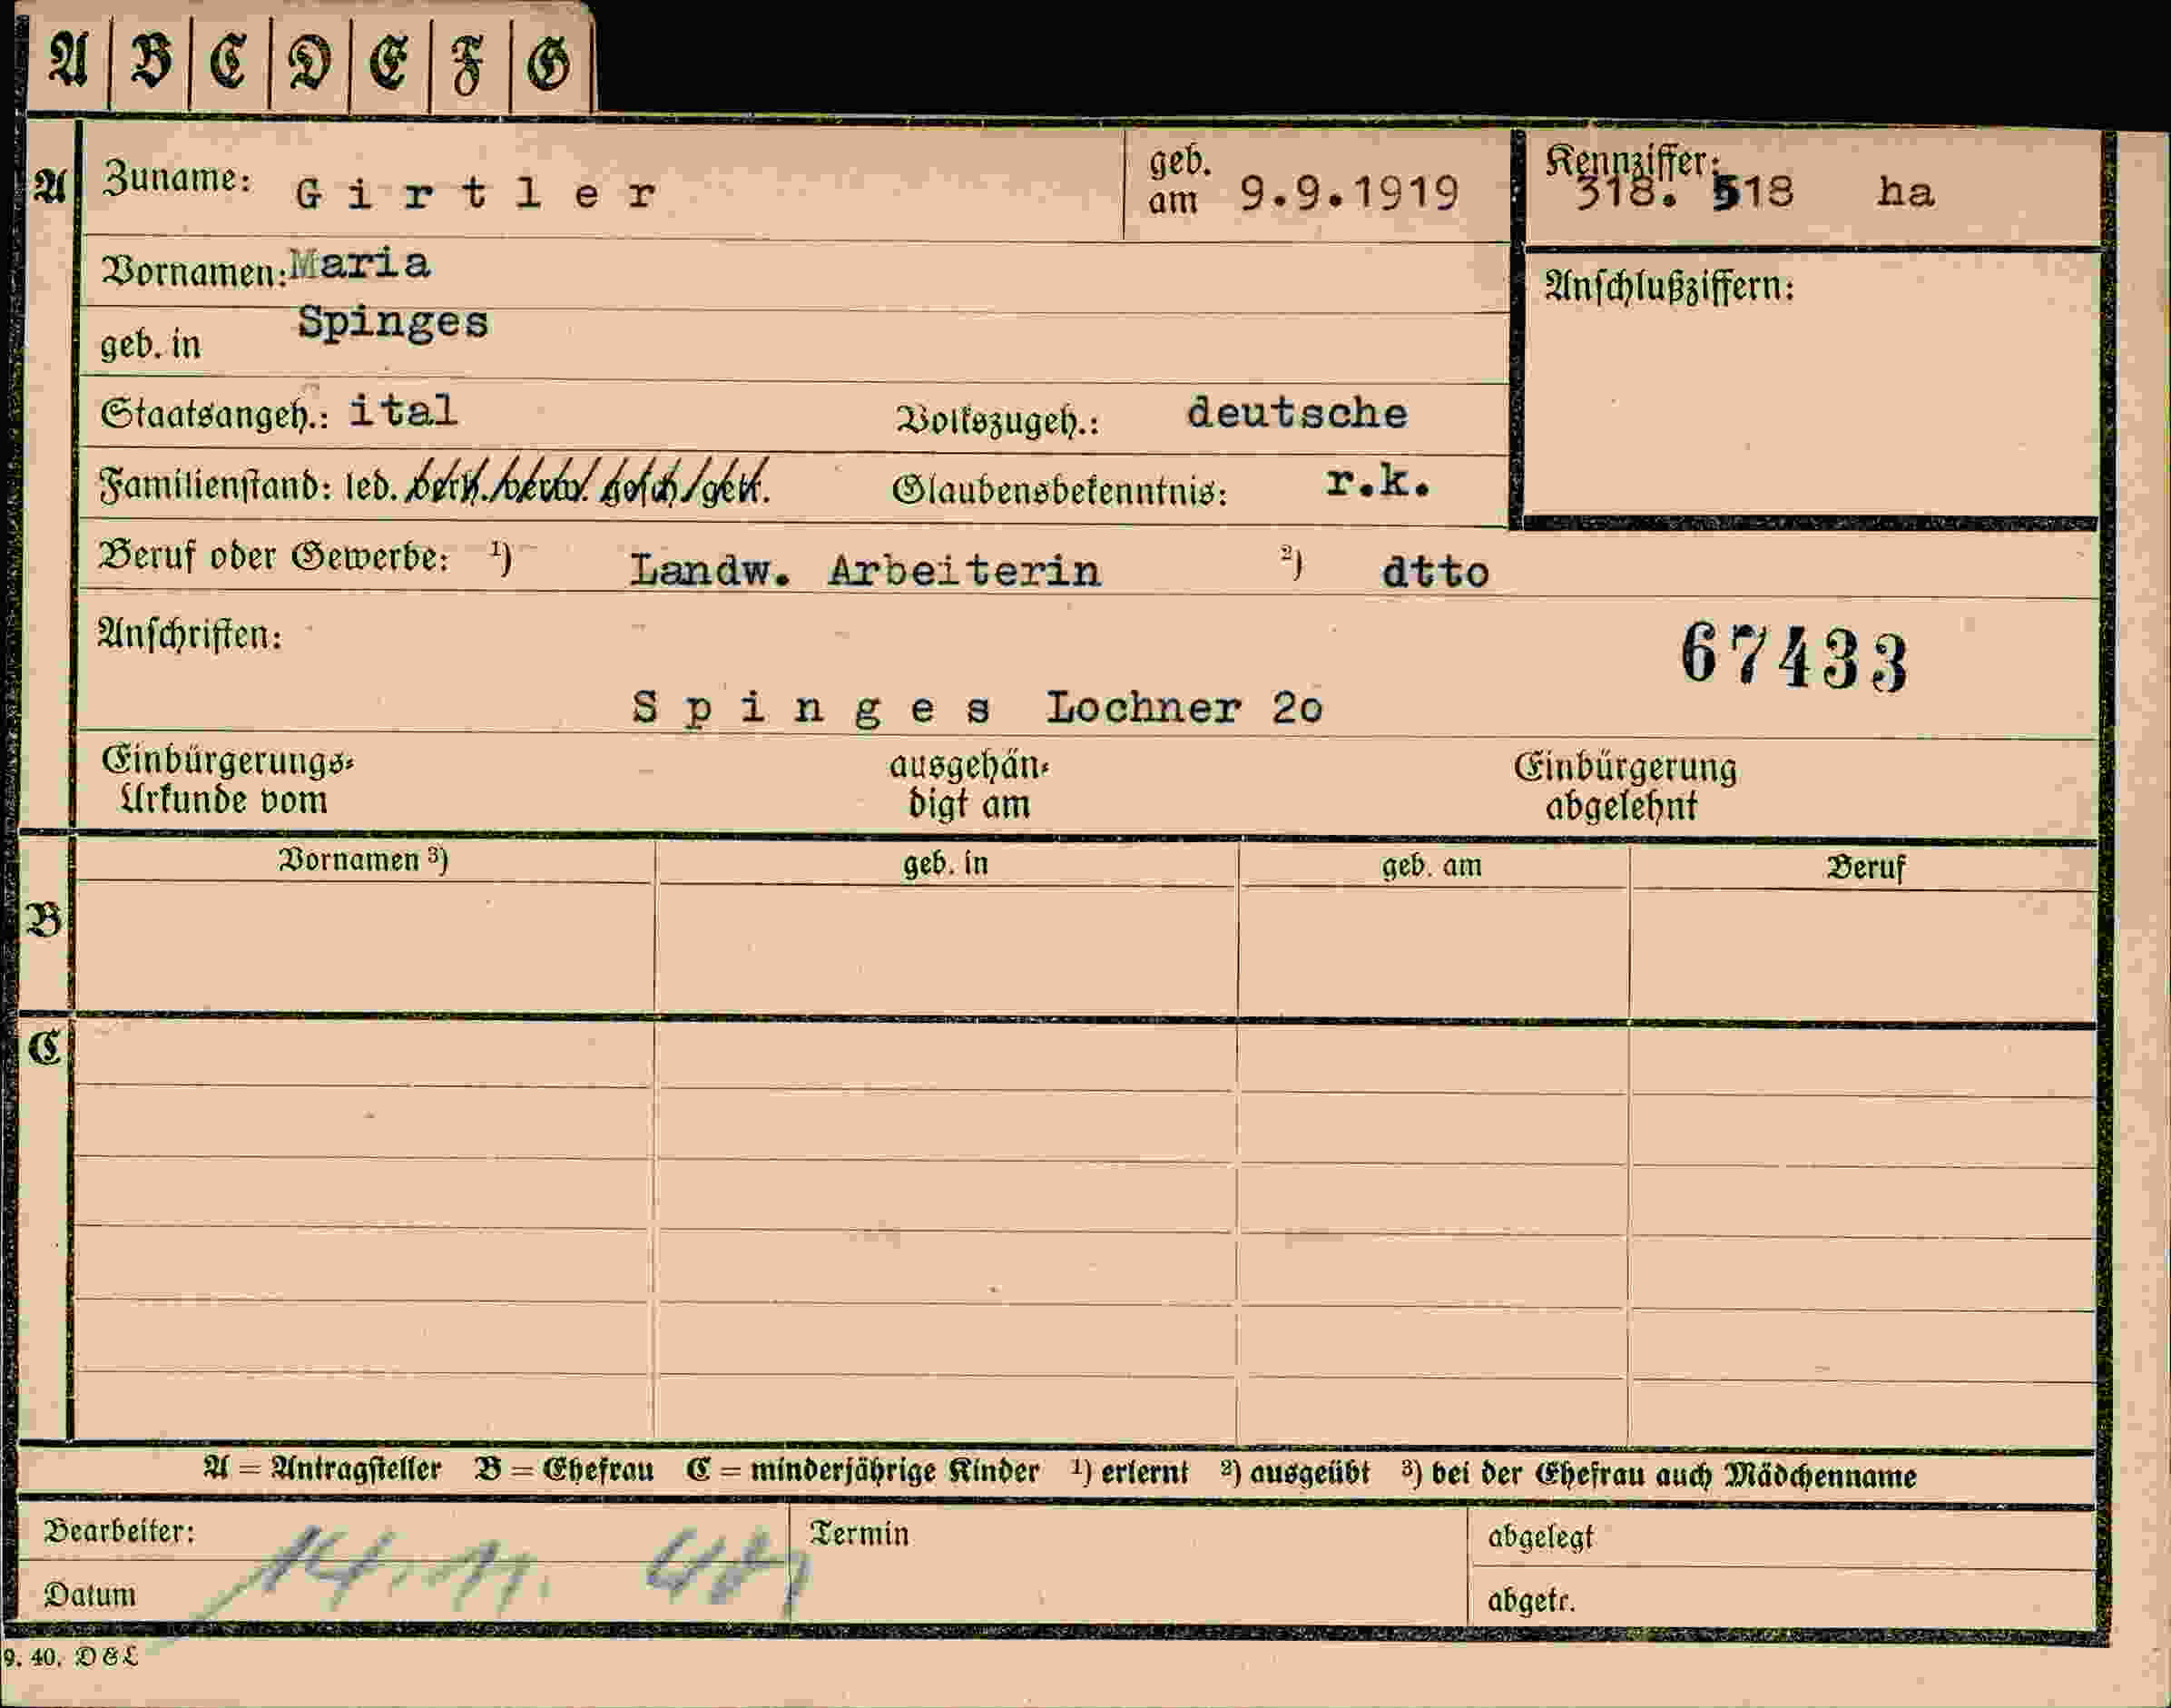 A B C D E F G
A Zuname: Girtler geb. am 9.9.1919 Kennziffer: 318. 518 ha
Vornamen: Maria
Anschlußziffern:
geb. in Spinges
Staatsangeh.: ital Volkszugeh.: deutsche
Familienstand: led. verh. verw. gesch. getr. Glaubensbekenntnis: r.k.
Beruf oder Gewerbe: ¹) Landw. Arbeiterin ²) dtto
Anschriften: 67433
Spinges Lochner 2o
Einbürgerungs- ausgehän- Einbürgerung
Urkunde vom digt am abgelehnt
Vornamen ³) geb. in geb. am Beruf
B
C
A = Antragsteller B = Ehefrau C = minderjährige Kinder ¹) erlernt ²) ausgeübt ³) bei der Ehefrau auch Mädchenname
Bearbeiter: Termin abgelegt
14. 11.
Datum abgetr.
9. 40. D & L